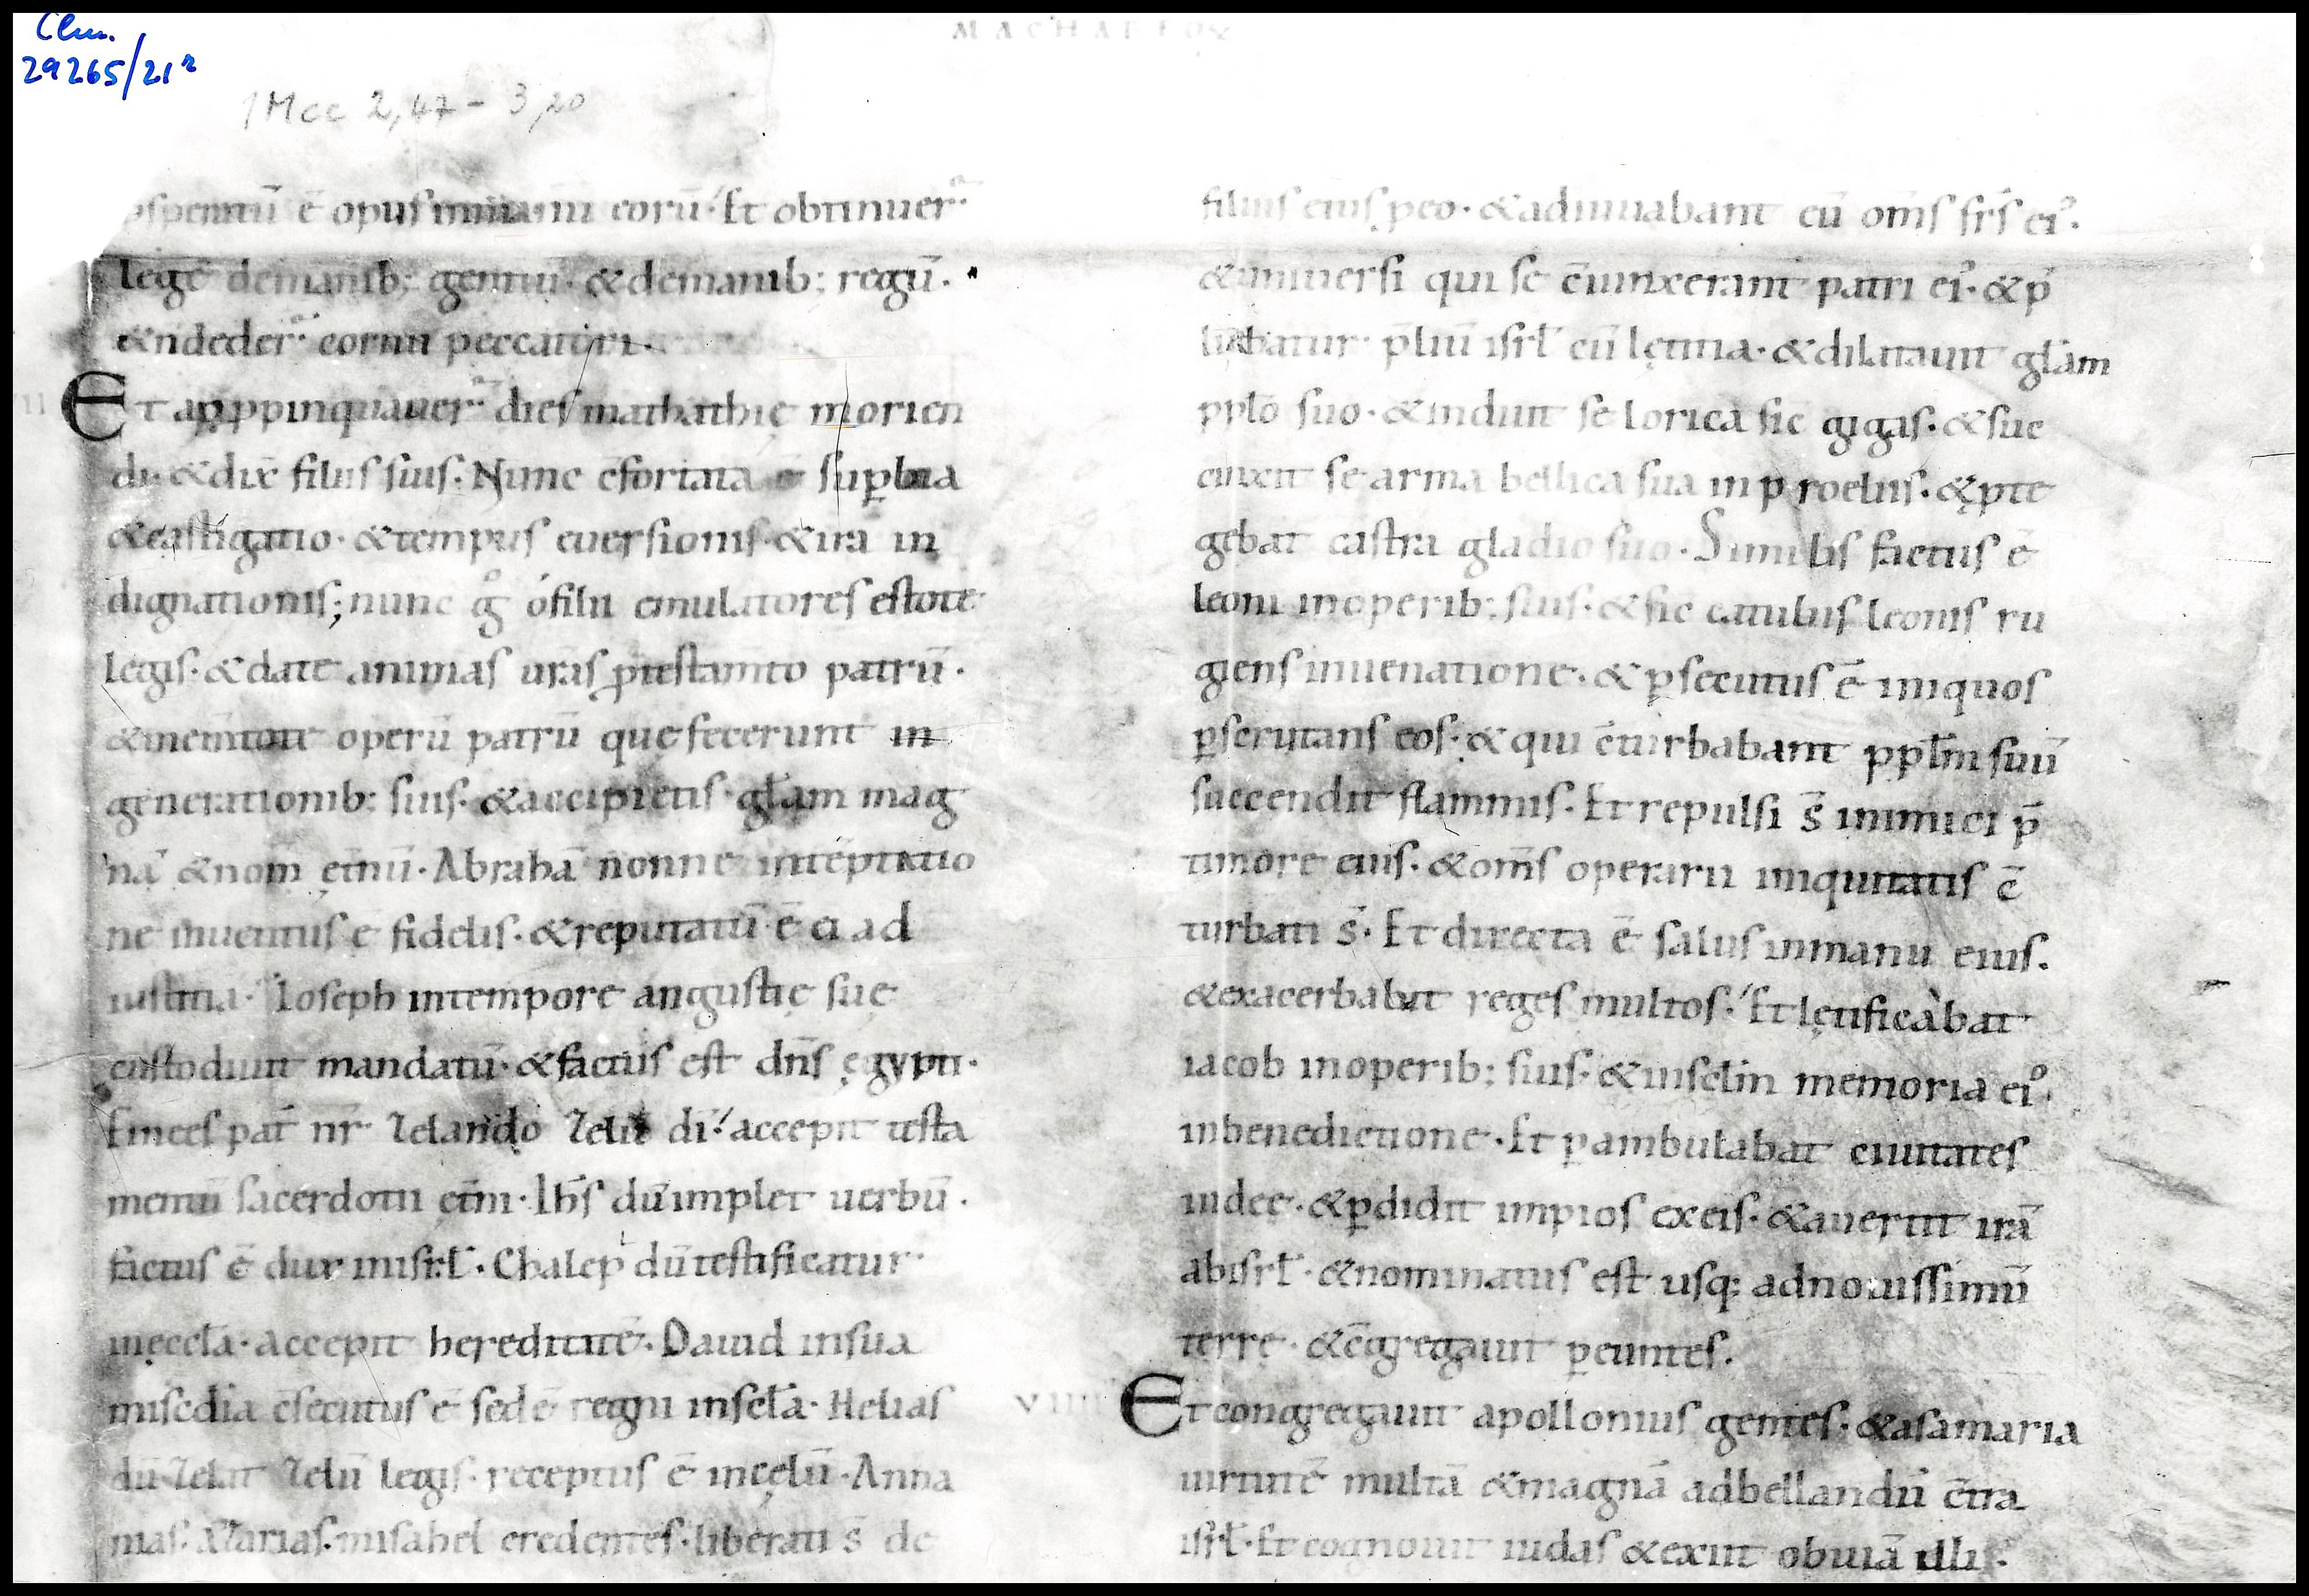 Clm.
29265/21r
MACHABEOR
1 Mcc 2,47 - 3,20
psperatū ē opus in manib; eorū. Et obtinuer̄
legē demanib; gentiū. & demanib; regū.
& n̄ deder̄ cornu peccatori.
VII
Et appropinquauer̄ dies mathathię morien
di. & dix̄ filiis suis. Nunc c̄fortata ē sup̱bia
& castigatio. & tempus euersionis. & ira in
dignationis; nunc gͦ ó filii emulatores estote
legis. & date animas ur̄as p̱ testam̄to patrū.
& mem̄tote operū patrū quę fecerunt in
generationib; suis. & accipietis gl̄am mag
nā & nom̄ et̄nū. Abrahā nonne intēptatio
ne inuentus ē fidelis. & reputatū ē ei ad
iustitia. Ioseph intempore angustię suę
custodiuit mandatū. & factus est dn̄s ęgypti.
finees pat̄ nr̄ zelando zelū di. accepit testa
mentū sacerdotii et̄ni. Ih̄s dū implet uerbū.
factus ē dux inisrl̄. Chaleph dū testificatur
inęccl̄a. accepit hereditatē. Dauid insua
mis̄cdia c̄secutus ē sedē regni inscl̄a. Helias
dū zelat zelū legis. receptus ē incęlū. Anna
nias. Azarias. misahel credentes. liberati s̄ de
filius eius p̱ eo. & adiuuabant eū om̄s fr̄s eiꝰ.
& uniuersi qui se c̄iunxerant patri eiꝰ. & p̄
liabatur p̄liū isrl̄ cū lętitia. & dilatauit gl̄am
pplō suo. & induit se loricā sic̄ gigas. & suc
cinxit se arma bellica sua in proeliis. & p̱te
gebat castra gladio suo. Similis factus ē
leoni inoperib; suis. & sic̄ catulus leonis ru
giens inuenatione. & p̱secutus ē iniquos
p̱scrutans eos. & qui c̄turbabant ppl̄m suū
succendit flammis. Et repulsi s̄ inimici p̄
timore eius. & om̄s operarii iniquitatis c̄
turbati s̄. Et directa ē salus inmanu eius.
& exacerbabat reges multos. Et lętificabat
iacob inoperib; suis. & insclm̄ memoria eiꝰ.
inbenedictione. Et p̱ambulabat ciuitates
iudee. & p̱didit impios exeis. & auertit irā
abisrl̄. & nominatus est usq; adnouissimū
terrę. & c̄gregauit p̱euntes.
VIIII
Et congregauit apollonius gentes. & asamaria
uirtutē multā & magnā adbellandū c̄tra
isrl̄. Et cognouit iudas & exiit obuiā illis.